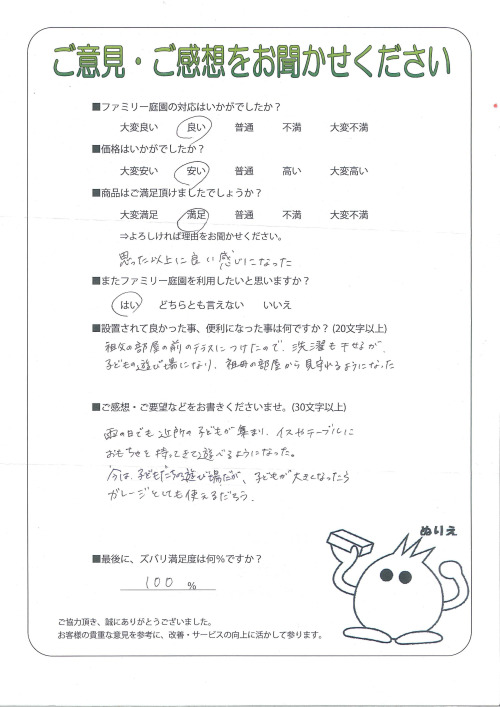 ご意見・ご感想をお聞かせください
■ファミリー庭園の対応はいかがでしたか？
大変良い 良い 普通 不満 大変不満
■価格はいかがでしたか？
大変安い 安い 普通 高い 大変高い
■商品はご満足頂けましたでしょうか？
大変満足 満足 普通 不満 大変不満
⇒よろしければ理由をお聞かせください。
思った以上に良い感じになった
■またファミリー庭園を利用したいと思いますか？
はい どちらとも言えない いいえ
■設置されて良かった事、便利になった事は何ですか？(20文字以上)
祖父の部屋の前のテラスにつけたので、洗濯も干せるが、
子どもの遊び場になり、祖母の部屋から見守れるようになった
■ご感想・ご要望などをお書きくださいませ。(30文字以上)
雨の日でも近所の子どもが集まり、イスやテーブルに
おもちゃを持ってきて遊べるようになった。
今は、子どもたちの遊び場だが、子どもが大きくなったら
ガレージとしても使えるだろう。
ぬりえ
■最後に、ズバリ満足度は何%ですか？
100 %
ご協力頂き、誠にありがとうございました。
お客様の貴重な意見を参考に、改善・サービスの向上に活かして参ります。